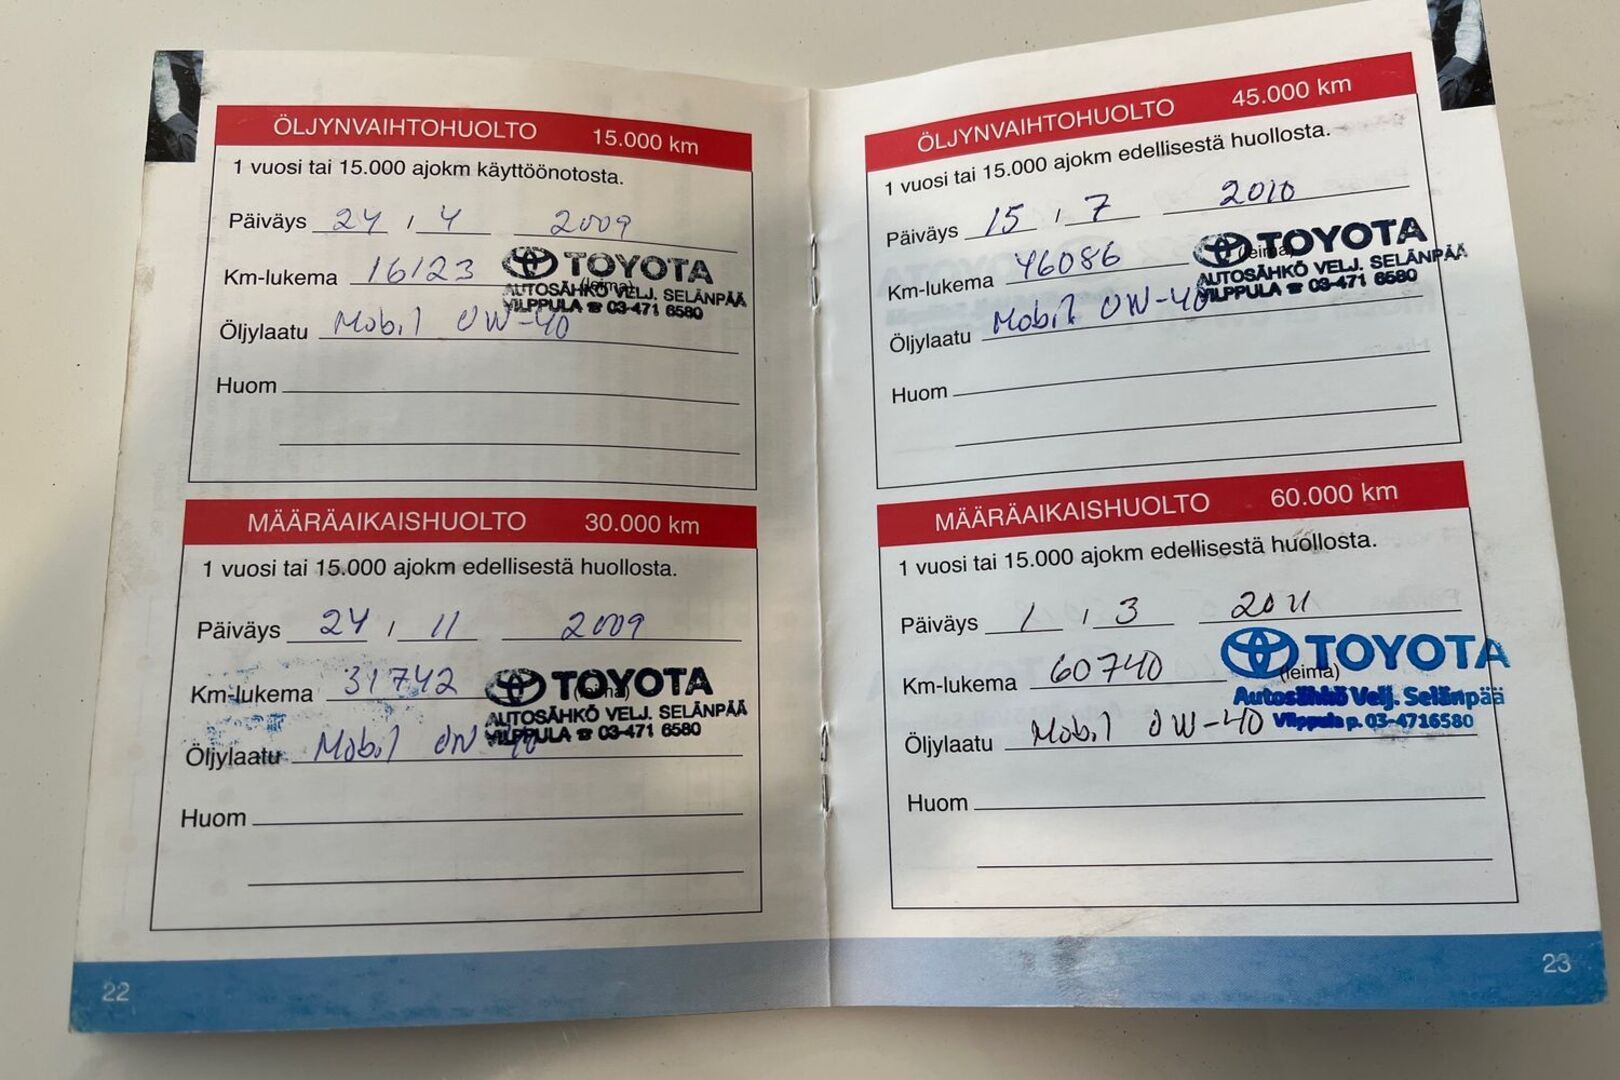 ÖLJYNVAIHTOHUOLTO 15.000 km
1 vuosi tai 15.000 ajokm käyttöönotosta.
Päiväys 24 / 4 2009
Km-lukema 16123
(leima)
TOYOTA
AUTOSÄHKÖ VELJ. SELÄNPÄÄ
VILPPULA ☎ 03-471 6580
Öljylaatu Mobil 0W-40
Huom
MÄÄRÄAIKAISHUOLTO 30.000 km
1 vuosi tai 15.000 ajokm edellisestä huollosta.
Päiväys 24 / 11 2009
Km-lukema 31742
(leima)
TOYOTA
AUTOSÄHKÖ VELJ. SELÄNPÄÄ
VILPPULA ☎ 03-471 6580
Öljylaatu Mobil 0W-40
Huom
22
ÖLJYNVAIHTOHUOLTO 45.000 km
1 vuosi tai 15.000 ajokm edellisestä huollosta.
Päiväys 15 / 7 2010
Km-lukema 46086
(leima)
TOYOTA
AUTOSÄHKÖ VELJ. SELÄNPÄÄ
VILPPULA ☎ 03-471 6580
Öljylaatu Mobil 0W-40
Huom
MÄÄRÄAIKAISHUOLTO 60.000 km
1 vuosi tai 15.000 ajokm edellisestä huollosta.
Päiväys 1 / 3 2011
Km-lukema 60740
(leima)
TOYOTA
Autosähkö Velj. Selänpää
Vilppula p. 03-4716580
Öljylaatu Mobil 0W-40
Huom
23